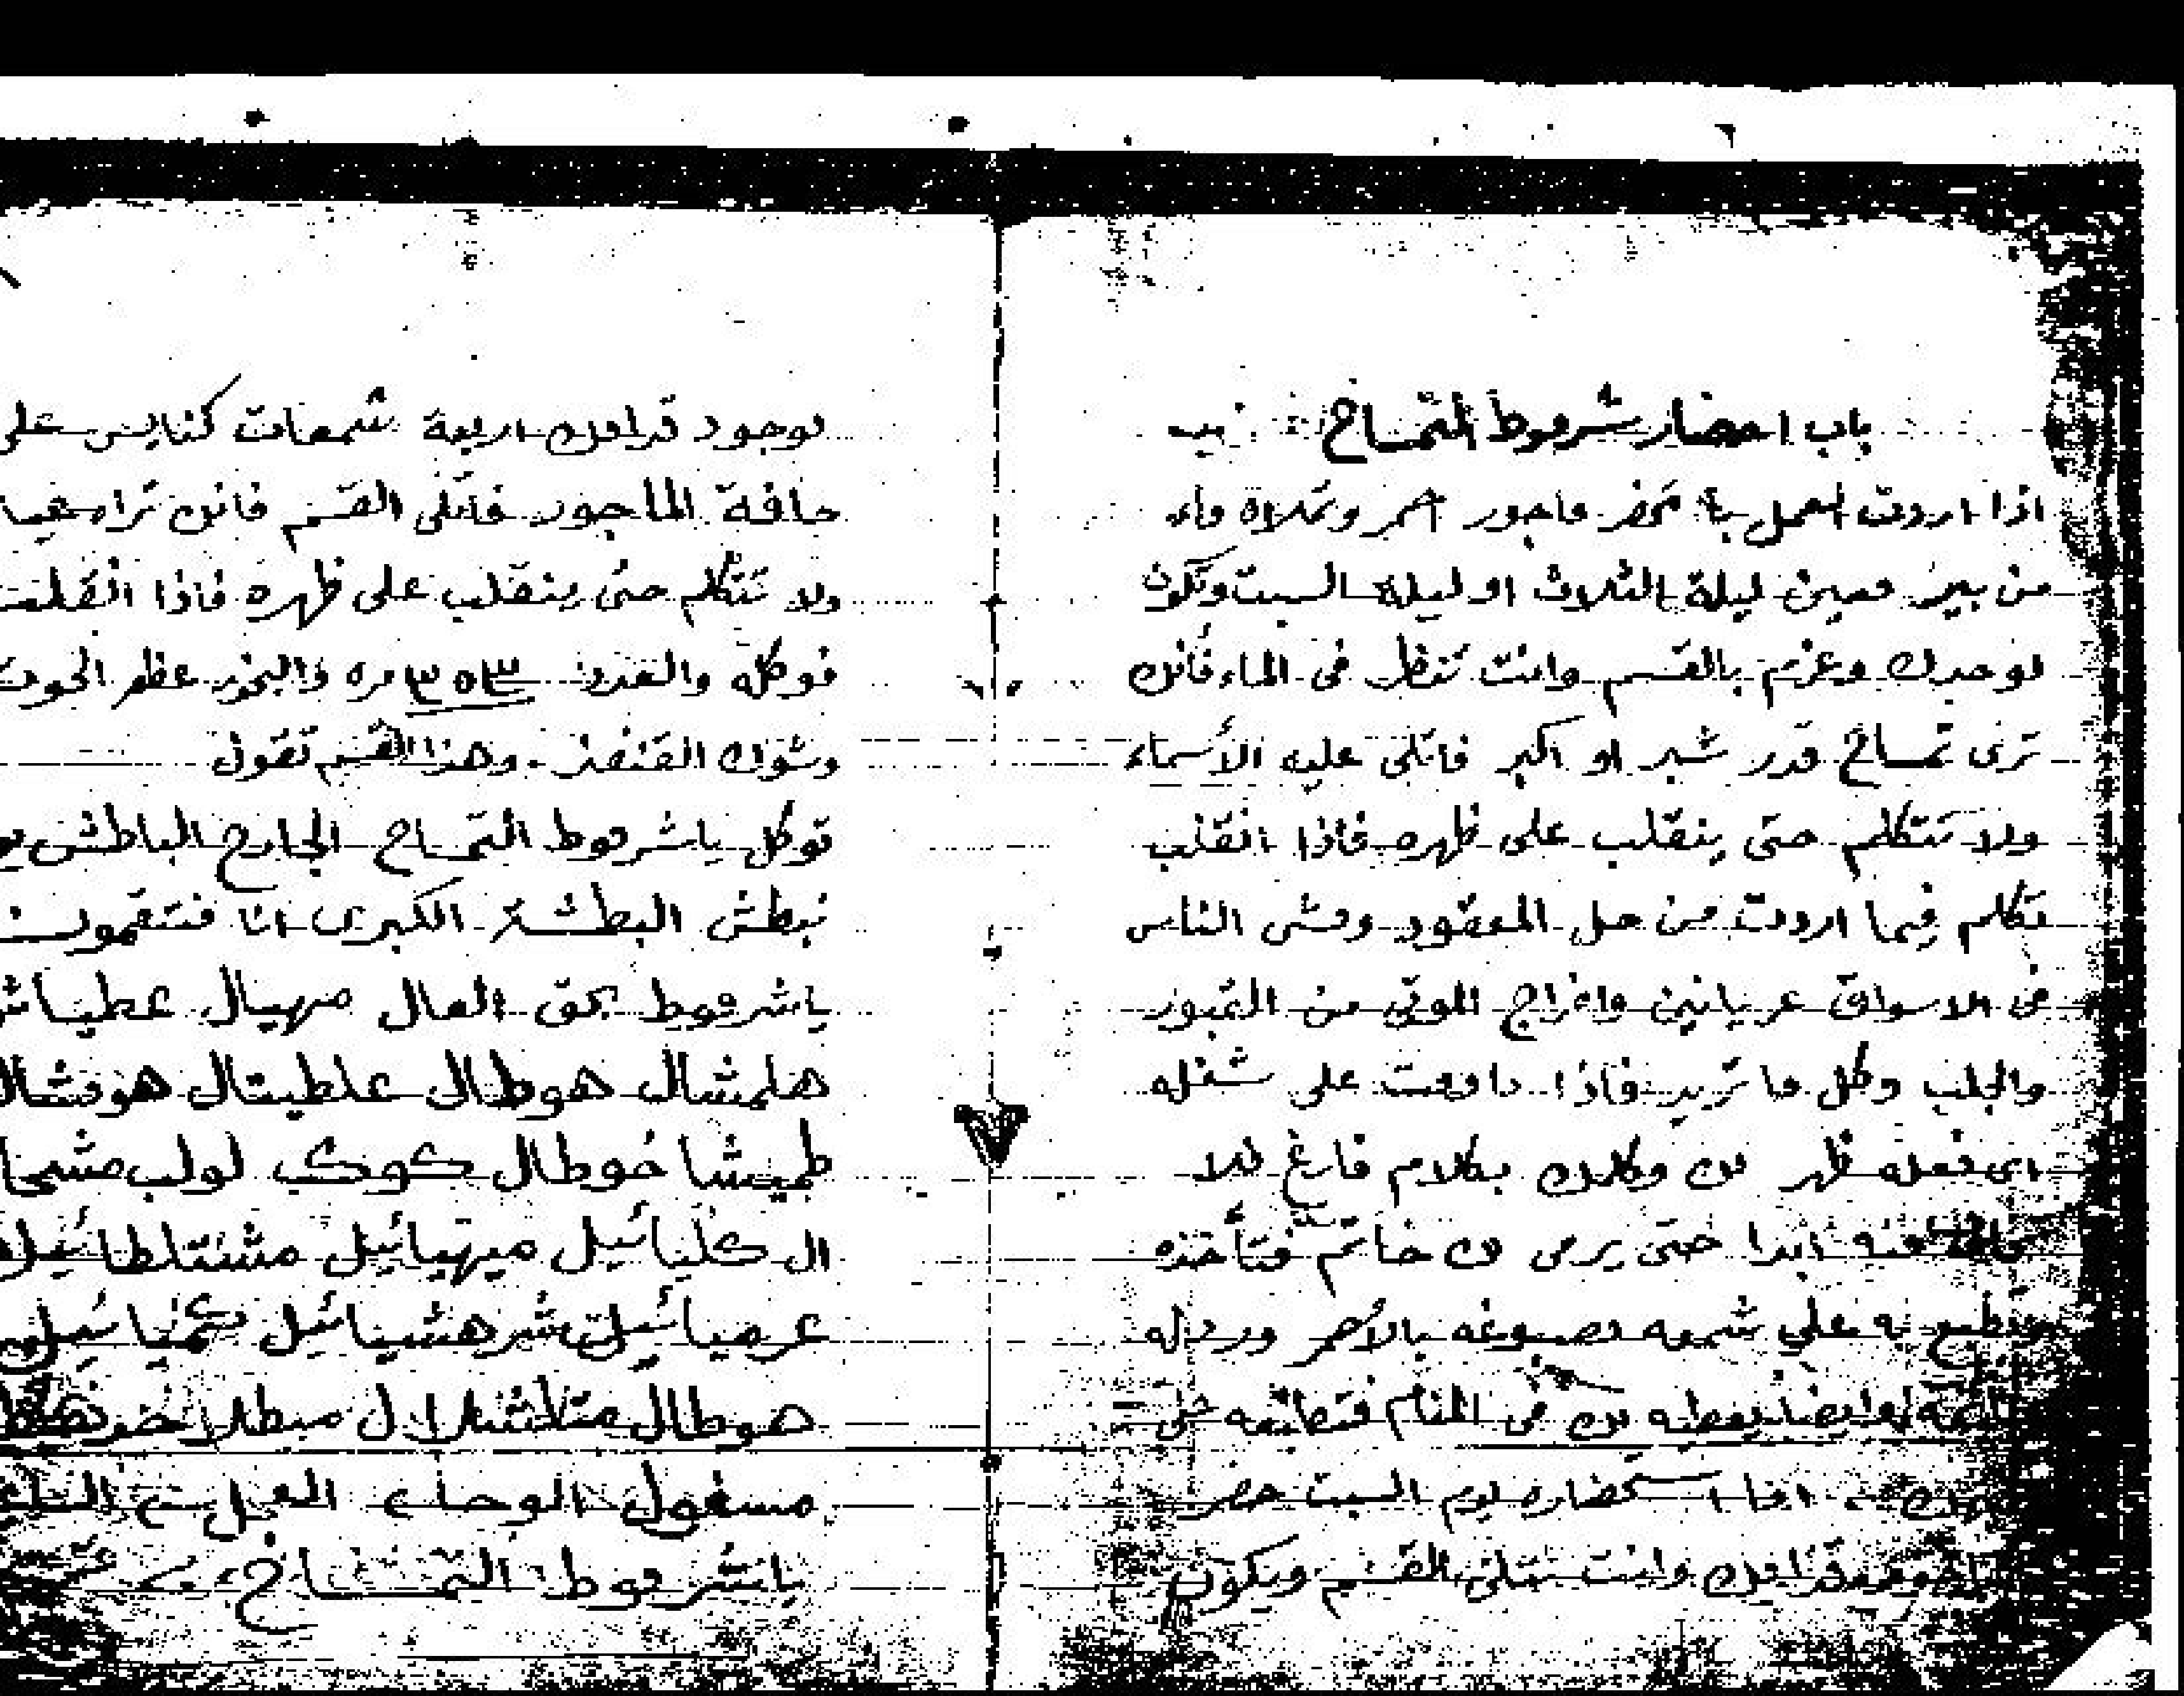 باب احضار شرموط التمساخ
اذا اردت العمل به تحضر ماجور احمر وتملاه ماء
من بير معين ليلة الثلاث او ليلة السبت وتكون
لوحدك وعزم بالقسم وانت تنظر فى الماء فانك
ترى تمساخ قدر شبر او اكبر فاتلى عليه الأسماء
ولا تتكلم حتى ينقلب على ظهره فاذا انقلب
تكلم فيما اردت من حل المعقود ومشى الناس
فى الاسواق عريانين واخراج الموتى من القبور
والجلب وكل ما تريد فاذا دامت على شغله
اى فعله ظهر لك وكلمك بكلام فارغ فلا
تخاف منه ابدا حتى يرمى لك خاتم فتأخذه
وتطبع به على شمعه مصبوغه بالأحمر وردله
ايضا يعطيه لك فى المنام فتطبعه
اما استحضاره يوم السبت حضر
قدامك وانت تتلى القسم ويكون
بوجود قدامك اربعة شمعات كنايس على
حافة الماجور فاتلى القسم فانك تراه
ولا تتكلم حتى ينقلب على ظهره فاذا انقلب
فوكله والعدد ٣٥٣ مره والبخور عظم الحوت
وشوك القنفذ. وهذا القسم تقول
توكل ياشرموط التمساح الجارح الباطش
نبطش البطشة الكبرى انا منتقمون
ياشرموط بحق العال مهيال
هلمشال هوطال علطيتال
طميشا خوطال كوك لولب
ال كلنيائيل ميهيائيل
عرميائيل شرهشيائيل
هوطال مبطلا
مسغول الوحا العجل
ياشرموط التمساخ